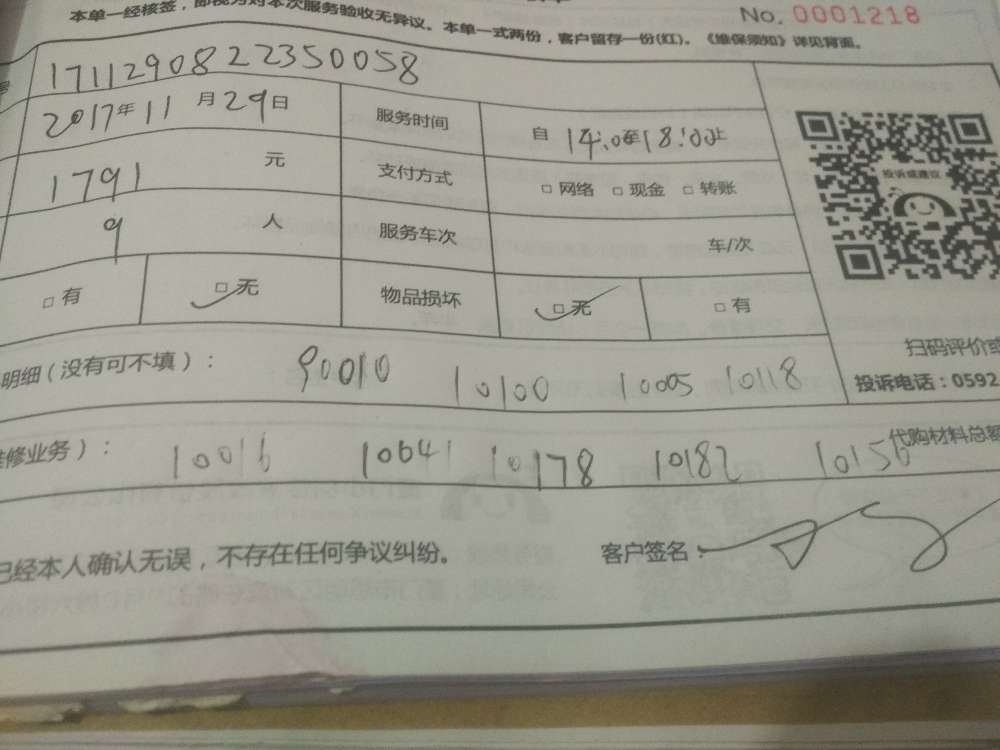 本单一经核签，即视为对本次服务验收无异议。本单一式两份，客户留存一份(红)。《维保须知》详见背面。
No. 0001218
17112908223350058
2017年11月29日 服务时间 自14:00至18:00止
1791 元 支付方式 □网络 □现金 □转账
投诉或建议
9 人 服务车次 车/次
□有 □无 物品损坏 □无 □有
扫码评价或
投诉电话：0592
明细（没有可不填）： 90010 10100 10005 10118
维修业务）： 10016 10041 10178 10182 10156 代购材料总额
已经本人确认无误，不存在任何争议纠纷。 客户签名：